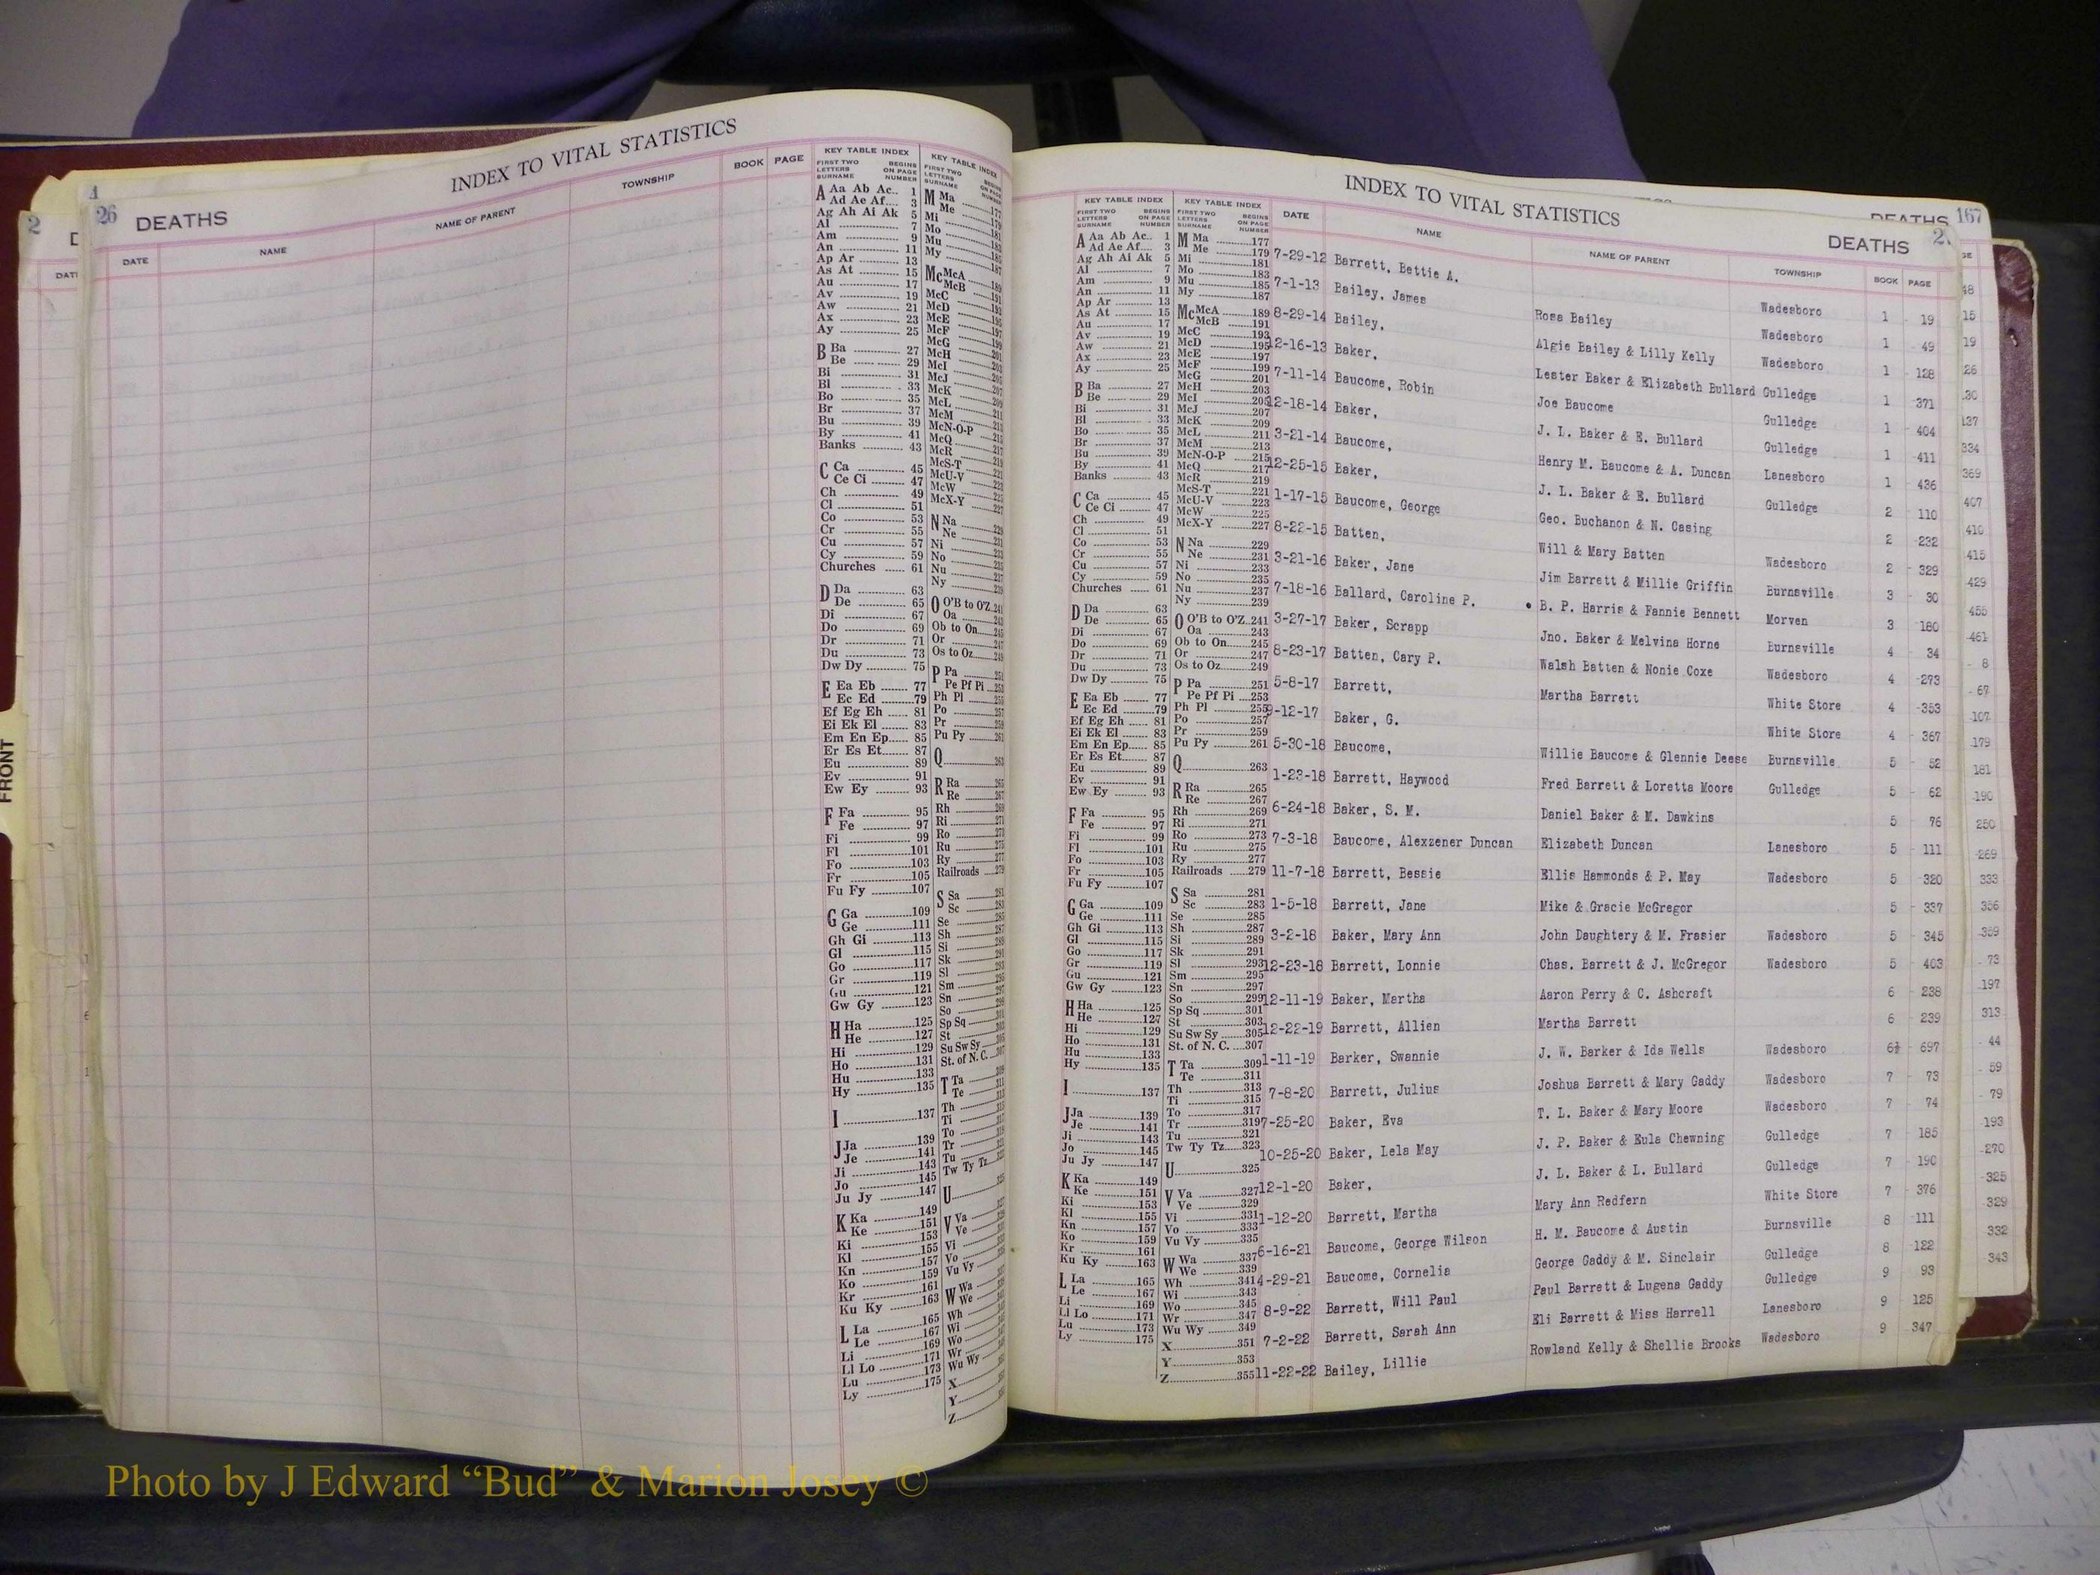 INDEX TO VITAL STATISTICS
26 DEATHS
DATE NAME NAME OF PARENT TOWNSHIP BOOK PAGE
KEY TABLE INDEX
FIRST TWO LETTERS SURNAME BEGINS ON PAGE NUMBER
A Aa Ab Ac 1
Ad Ae Af 3
Ag Ah Ai Ak 5
Al 7
Am 9
An 11
Ap Ar 13
As At 15
Au 17
Av 19
Aw 21
Ax 23
Ay 25
B Ba 27
Be 29
Bi 31
Bl 33
Bo 35
Br 37
Bu 39
By 41
Banks 43
C Ca 45
Ce Ci 47
Ch 49
Cl 51
Co 53
Cr 55
Cu 57
Cy 59
Churches 61
D Da 63
De 65
Di 67
Do 69
Dr 71
Du 73
Dw Dy 75
E Ea Eb 77
Ec Ed 79
Ef Eg Eh 81
Ei Ek El 83
Em En Ep 85
Er Es Et 87
Eu 89
Ev 91
Ew Ey 93
F Fa 95
Fe 97
Fi 99
Fl 101
Fo 103
Fr 105
Fu Fy 107
G Ga 109
Ge 111
Gh Gi 113
Gl 115
Go 117
Gr 119
Gu 121
Gw Gy 123
H Ha 125
He 127
Hi 129
Ho 131
Hu 133
Hy 135
I 137
J Ja 139
Je 141
Ji 143
Jo 145
Ju Jy 147
K Ka 149
Ke 151
Ki 153
Kl 155
Kn 157
Ko 159
Kr 161
Ku Ky 163
L La 165
Le 167
Li 169
Ll Lo 171
Lu 173
Ly 175
KEY TABLE INDEX
M Ma 177
Me 179
Mi 181
Mo 183
Mu 185
My 187
Mc McA 189
McB 191
McC 193
McD 195
McE 197
McF 199
McG 201
McH 203
McI 205
McJ 207
McK 209
McL 211
McM 213
McN-O-P 215
McQ 217
McR 219
McS-T 221
McU-V 223
McW 225
McX-Y 227
N Na 229
Ne 231
Ni 233
No 235
Nu 237
Ny 239
O O'B to O'Z 241
Oa 243
Ob to On 245
Or 247
Os to Oz 249
P Pa 251
Pe Pf Pi 253
Ph Pl 255
Po 257
Pr 259
Pu Py 261
Q 263
R Ra 265
Re 267
Rh 269
Ri 271
Ro 273
Ru 275
Ry 277
Railroads 279
S Sa 281
Sc 283
Se 285
Sh 287
Si 289
Sk 291
Sl 293
Sm 295
Sn 297
So 299
Sp Sq 301
St 303
Su Sw Sy 305
St. of N. C. 307
T Ta 309
Te 311
Th 313
Ti 315
To 317
Tr 319
Tu 321
Tw Ty Tz 323
U 325
V Va 327
Ve 329
Vi 331
Vo 333
Vu Vy 335
W Wa 337
We 339
Wh 341
Wi 343
Wo 345
Wr 347
Wu Wy 349
X 351
Y 353
Z 355
INDEX TO VITAL STATISTICS
DEATHS 167
DEATHS
DATE NAME NAME OF PARENT TOWNSHIP BOOK PAGE
7-29-12 Barrett, Bettie A. Wadesboro 1 19
7-1-13 Bailey, James Rosa Bailey Wadesboro 1 49
8-29-14 Bailey, Algie Bailey & Lilly Kelly Wadesboro 1 128
12-16-13 Baker, Lester Baker & Elizabeth Bullard Gulledge 1 371
7-11-14 Baucome, Robin Joe Baucome Gulledge 1 404
12-18-14 Baker, J. L. Baker & E. Bullard Gulledge 1 411
3-21-14 Baucome, Henry M. Baucome & A. Duncan Lanesboro 1 436
12-25-15 Baker, J. L. Baker & E. Bullard Gulledge 2 110
1-17-15 Baucome, George Geo. Buchanon & N. Casing 2 232
8-22-15 Batten, Will & Mary Batten Wadesboro 2 329
3-21-16 Baker, Jane Jim Barrett & Millie Griffin Burnsville 3 30
7-18-16 Ballard, Caroline P. • B. P. Harris & Fannie Bennett Morven 3 180
3-27-17 Baker, Scrapp Jno. Baker & Melvina Horne Burnsville 4 34
8-23-17 Batten, Cary P. Walsh Batten & Nonie Coxe Wadesboro 4 273
5-8-17 Barrett, Martha Barrett White Store 4 353
9-12-17 Baker, G. White Store 4 367
5-30-18 Baucome, Willie Baucome & Glennie Deese Burnsville 5 52
1-23-18 Barrett, Haywood Fred Barrett & Loretta Moore Gulledge 5 62
6-24-18 Baker, S. M. Daniel Baker & M. Dawkins 5 76
7-3-18 Baucome, Alexzener Duncan Elizabeth Duncan Lanesboro 5 111
11-7-18 Barrett, Bessie Ellis Hammonds & P. May Wadesboro 5 320
1-5-18 Barrett, Jane Mike & Gracie McGregor 5 337
3-2-18 Baker, Mary Ann John Daughtery & M. Frasier Wadesboro 5 345
12-23-18 Barrett, Lonnie Chas. Barrett & J. McGregor Wadesboro 5 403
12-11-19 Baker, Martha Aaron Perry & C. Ashcraft 6 238
12-22-19 Barrett, Allien Martha Barrett 6 239
1-11-19 Barker, Swannie J. W. Barker & Ida Wells Wadesboro 6½ 697
7-8-20 Barrett, Julius Joshua Barrett & Mary Gaddy Wadesboro 7 73
7-25-20 Baker, Eva T. L. Baker & Mary Moore Wadesboro 7 74
10-25-20 Baker, Lela May J. P. Baker & Eula Chewning Gulledge 7 185
12-1-20 Baker, J. L. Baker & L. Bullard Gulledge 7 190
1-12-20 Barrett, Martha Mary Ann Redfern White Store 7 376
6-16-21 Baucome, George Wilson H. M. Baucome & Austin Burnsville 8 111
4-29-21 Baucome, Cornelia George Gaddy & M. Sinclair Gulledge 8 122
8-9-22 Barrett, Will Paul Paul Barrett & Lugena Gaddy Gulledge 9 93
7-2-22 Barrett, Sarah Ann Eli Barrett & Miss Harrell Lanesboro 9 125
11-22-22 Bailey, Lillie Rowland Kelly & Shellie Brooks Wadesboro 9 347
KEY TABLE INDEX
FIRST TWO LETTERS SURNAME BEGINS ON PAGE NUMBER
A Aa Ab Ac 1
Ad Ae Af 3
Ag Ah Ai Ak 5
Al 7
Am 9
An 11
Ap Ar 13
As At 15
Au 17
Av 19
Aw 21
Ax 23
Ay 25
B Ba 27
Be 29
Bi 31
Bl 33
Bo 35
Br 37
Bu 39
By 41
Banks 43
FRONT
Photo by J Edward “Bud” & Marion Josey ©